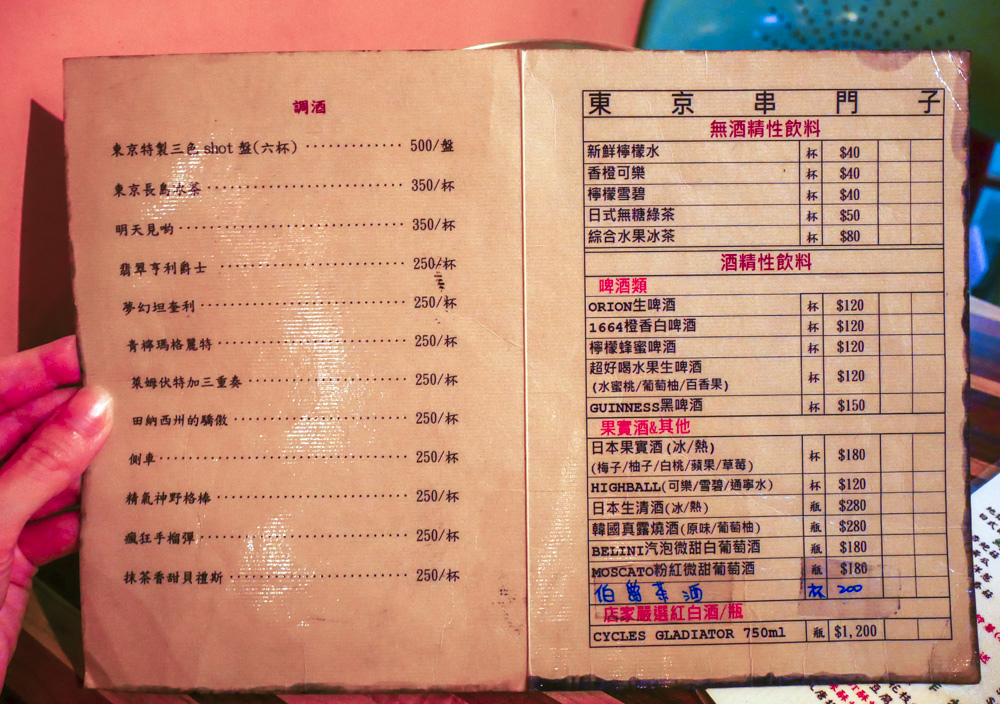 調酒
東京特製三色 shot 盤(六杯) ············ 500/盤
東京長島冰茶 ························ 350/杯
明天見喲 ··························· 350/杯
翡翠亨利爵士 ······················ 250/杯
夢幻坦奎利 ························· 250/杯
青檸瑪格麗特 ······················· 250/杯
萊姆伏特加三重奏 ···················· 250/杯
田納西州的驕傲 ······················ 250/杯
側車 ······························ 250/杯
精氣神野格棒 ······················· 250/杯
瘋狂手榴彈 ························· 250/杯
抹茶香甜貝禮斯 ······················ 250/杯
東京串門子
無酒精性飲料
新鮮檸檬水 杯 $40
香橙可樂 杯 $40
檸檬雪碧 杯 $40
日式無糖綠茶 杯 $50
綜合水果冰茶 杯 $80
酒精性飲料
啤酒類
ORION生啤酒 杯 $120
1664橙香白啤酒 杯 $120
檸檬蜂蜜啤酒 杯 $120
超好喝水果生啤酒
(水蜜桃/葡萄柚/百香果) 杯 $120
GUINNESS黑啤酒 杯 $150
果實酒&其他
日本果實酒(冰/熱)
(梅子/柚子/白桃/蘋果/草莓) 杯 $180
HIGHBALL(可樂/雪碧/通寧水) 杯 $120
日本生清酒(冰/熱) 瓶 $280
韓國真露燒酒(原味/葡萄柚) 瓶 $280
BELINI汽泡微甜白葡萄酒 瓶 $180
MOSCATO粉紅微甜葡萄酒 瓶 $180
伯爵茶酒 杯 200
店家嚴選紅白酒/瓶
CYCLES GLADIATOR 750ml 瓶 $1,200